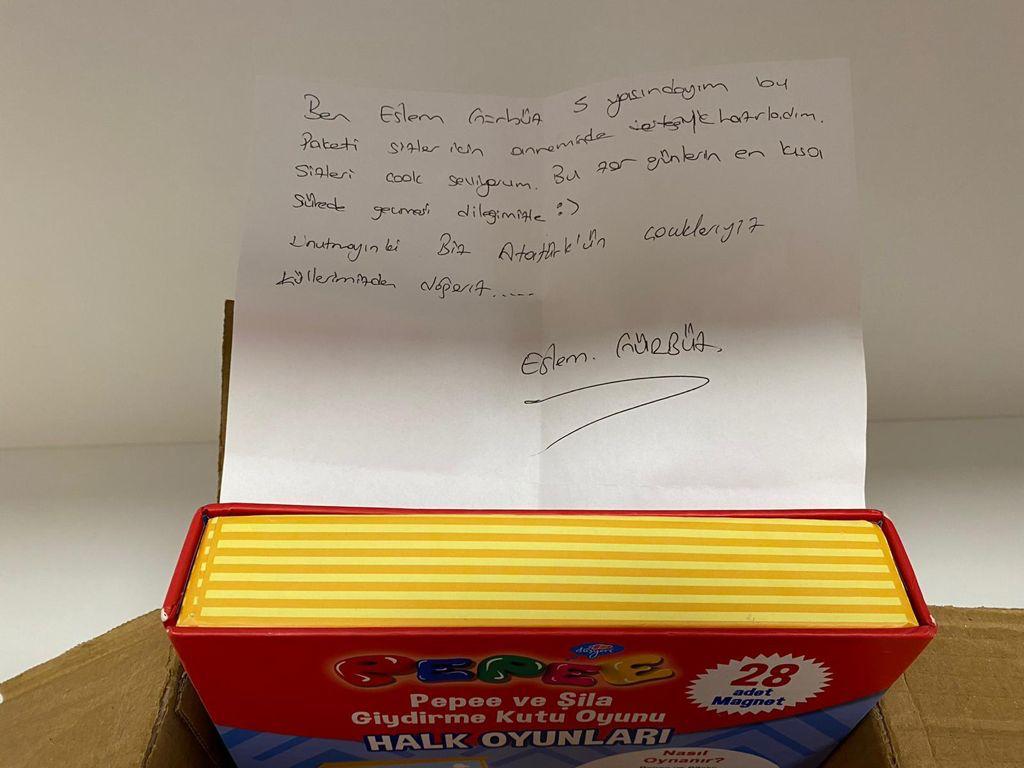 Ben Eslem Gürbüz 5 yaşındayım bu
Paketi sizler için annemde hazırladım.
Sizleri cook seviyorum. Bu zor günlerin en kısa
Sürede geçmesi dileğimizle :)
Unutmayın ki Biz Atatürk'ün çocuklarıyız
küllerimizden doğarız.....
Eslem. GÜRBÜZ.
düşyeri
PEPEE
28
adet
Magnet
Pepee ve Şila
Giydirme Kutu Oyunu
HALK OYUNLARI
Nasıl
Oynanır?